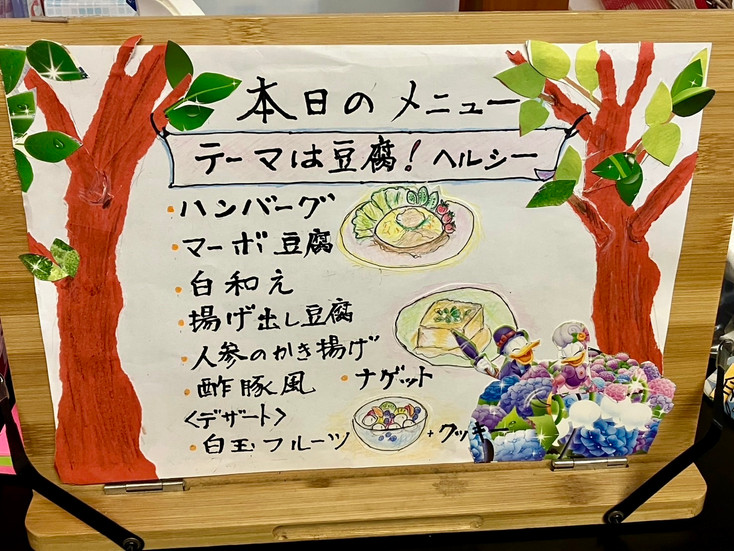 本日のメニュー
テーマは豆腐！ヘルシー
・ハンバーグ
・マーボ豆腐
・白和え
・揚げ出し豆腐
・人参のかき揚げ
・酢豚風 ・ナゲット
<デザート>
・白玉フルーツ + クッキー